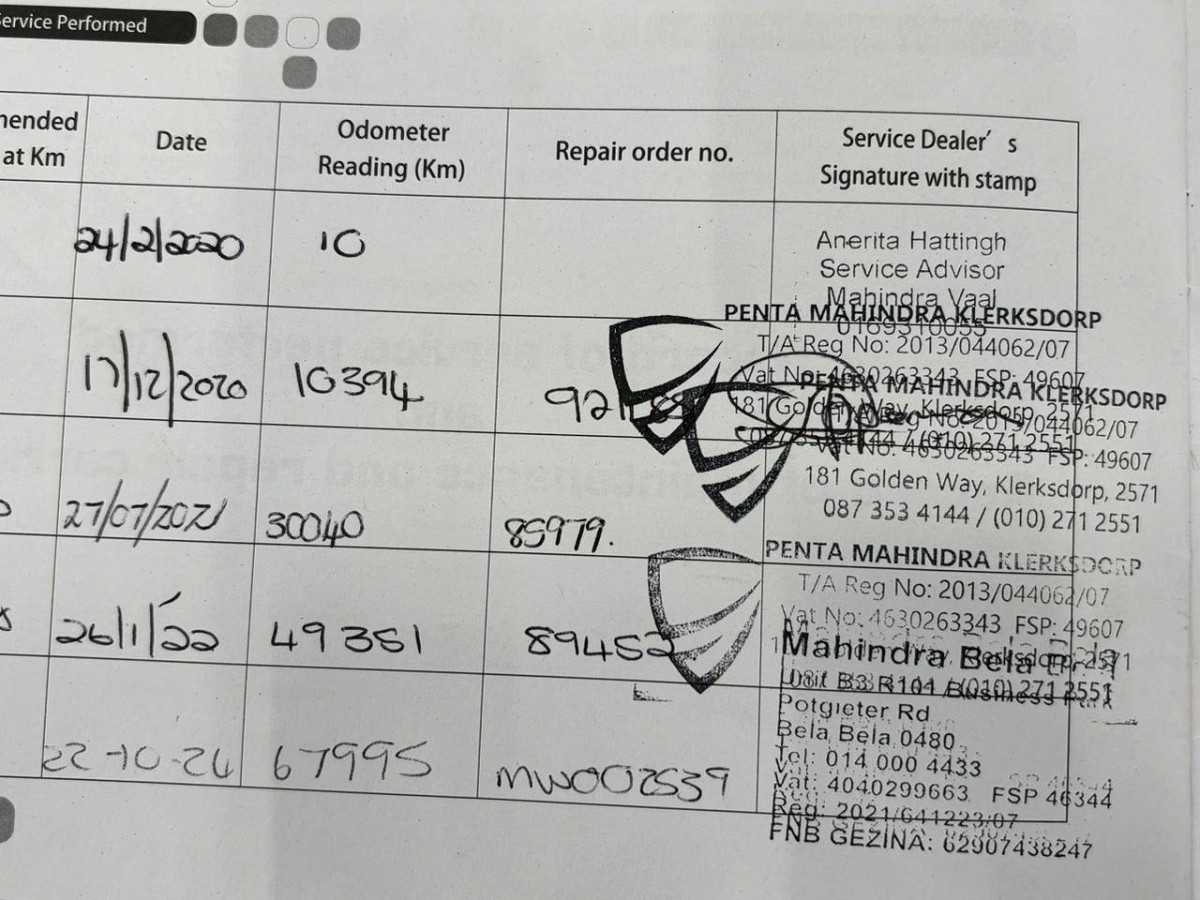 ervice Performed
ended
at Km
Date
Odometer
Reading (Km)
Repair order no.
Service Dealer's
Signature with stamp
24/2/2020 10
Anerita Hattingh
Service Advisor
Mahindra Vaal
0169310055
17/12/2020 10394
PENTA MAHINDRA KLERKSDORP
T/A Reg No: 2013/044062/07
Vat No: 4630263343 FSP: 49607
181 Golden Way, Klerksdorp, 2571
(010) 271 2551
27/07/2021 30040 85979.
PENTA MAHINDRA KLERKSDORP
Reg No: 2013/044062/07
Vat No: 4630263343 FSP: 49607
181 Golden Way, Klerksdorp, 2571
087 353 4144 / (010) 271 2551
26/1/22 49351 89452
PENTA MAHINDRA KLERKSDORP
T/A Reg No: 2013/044062/07
Vat No: 4630263343 FSP: 49607
Klerksdorp, 2571
(010) 271 2551
22-10-24 67995 MW002539
Mahindra Bela Bela
Unit B3 R101 Business Park
Potgieter Rd
Bela Bela 0480
Tel: 014 000 4433
Vat: 4040299663 FSP 46344
Reg: 2021/641223/07
FNB GEZINA: 62907438247